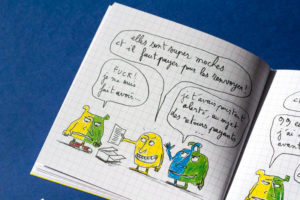 elles sont super moches
et il faut payer pour les renvoyer !
FUCK !
je me suis
fait avoir.
je t'avais pourtant
"alerté" au sujet
des retours payants
99 e
j'a
aven